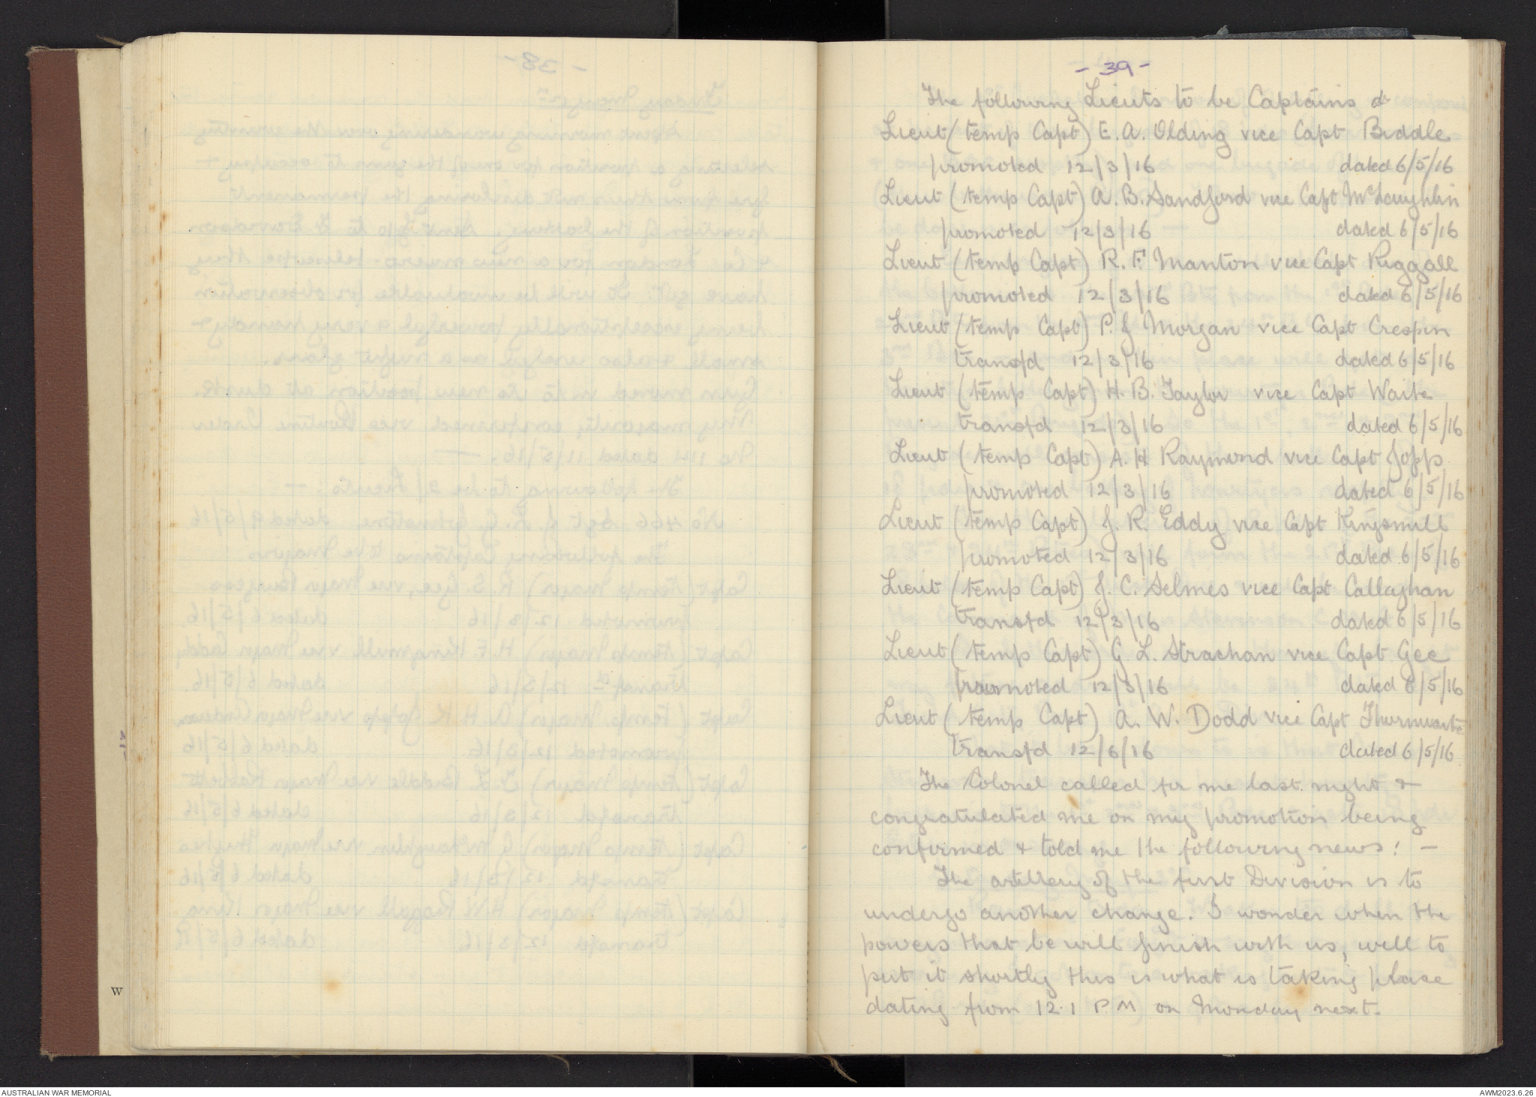 - 39 -
The following Lieuts to be Captains
Lieut (temp Capt) E. A. Olding vice Capt Biddle
promoted 12/3/16 dated 6/5/16
Lieut (temp Capt) A. B. Sandford vice Capt McLaughlin
promoted 12/3/16 dated 6/5/16
Lieut (temp Capt) R. F. Manton vice Capt Riggall
promoted 12/3/16 dated 6/5/16
Lieut (temp Capt) P. J Morgan vice Capt Crespin
transfd 12/3/16 dated 6/5/16
Lieut (temp Capt) H. B. Taylor vice Capt Waite
transfd 12/3/16 dated 6/5/16
Lieut (temp Capt) A. H Raymond vice Capt Jopp
promoted 12/3/16 dated 6/5/16
Lieut (temp Capt) J. R. Eddy vice Capt Kingsmill
promoted 12/3/16 dated 6/5/16
Lieut (temp Capt) J. C. Selmes vice Capt Callaghan
transfd 12/3/16 dated 6/5/16
Lieut (temp Capt) G. L. Strachan vice Capt Gee
promoted 12/3/16 dated 6/5/16
Lieut (temp Capt) A. W. Dodd vice Capt
transfd 12/6/16 dated 6/5/16
The Colonel called for me last night +
congratulated me on my promotion being
confirmed + told me the following news: -
The artillery of the first Division is to
undergo another change. I wonder when the
powers that be will finish with us, well to
put it shortly this is what is taking place
dating from 12.1 PM on Monday next.
W
AUSTRALIAN WAR MEMORIAL
AWM2023.6.26